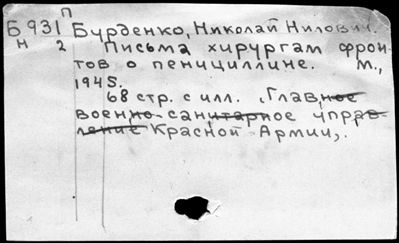 П
Б 931 Бурденко, Николай Нилович.
Н 2 Письма хирургам фрон-
тов о пенициллине. М.,
1945.
68 стр. с илл. (Главное
военно-санитарное управ-
ление Красной Армии).